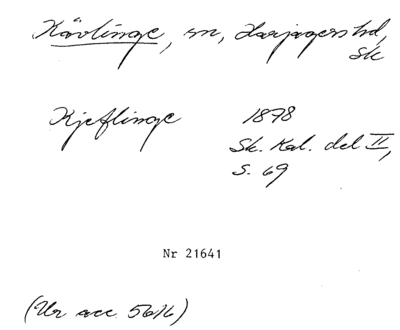 Kävlinge, sn, Harjagers hd,
Sk
Kjeflinge 1878
Sk. Kal. del II,
s. 69
Nr 21641
(Ur acc. 5616)